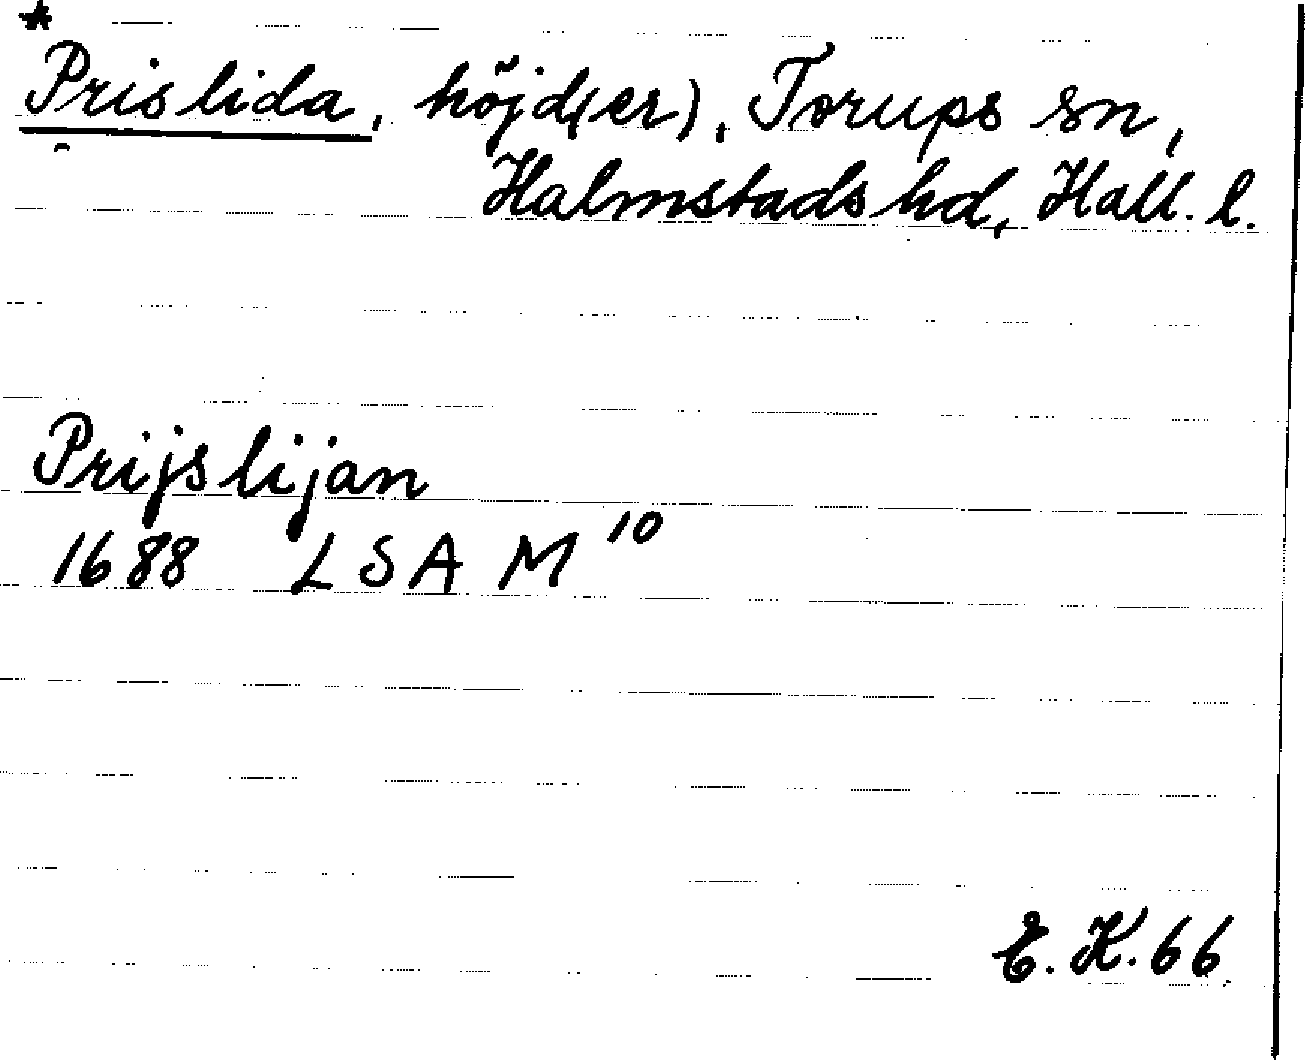 *
Prislida, höjd(er), Torups sn,
Halmstads hd, Hall. l.
Prijslijan
1688 LSA M 10
E. K. 66